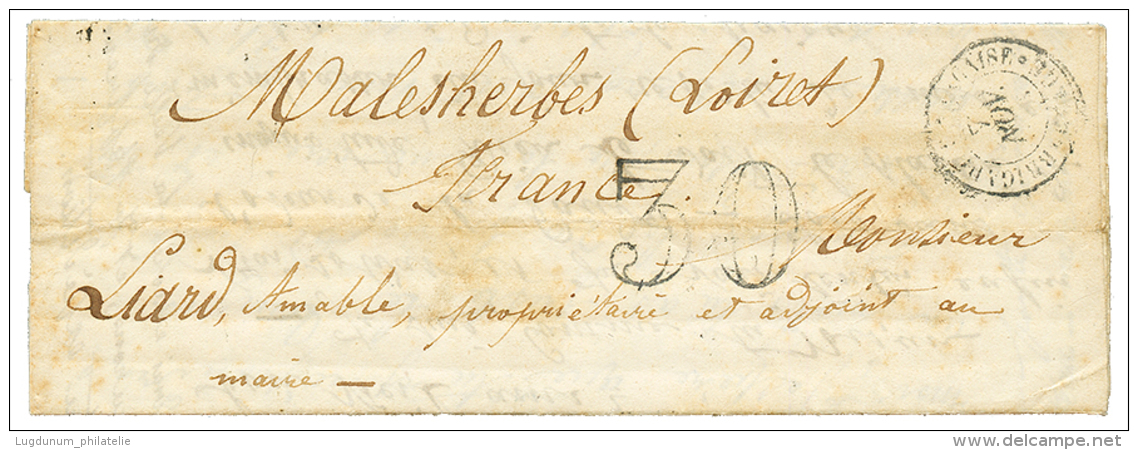 Malesherbes (Loiret)
France.
30
Monsieur
Liard, Amable, propriétaire et adjoint au
maire —
BRIGADE
NOV
Lugdunum_philatelie
delcampe.net